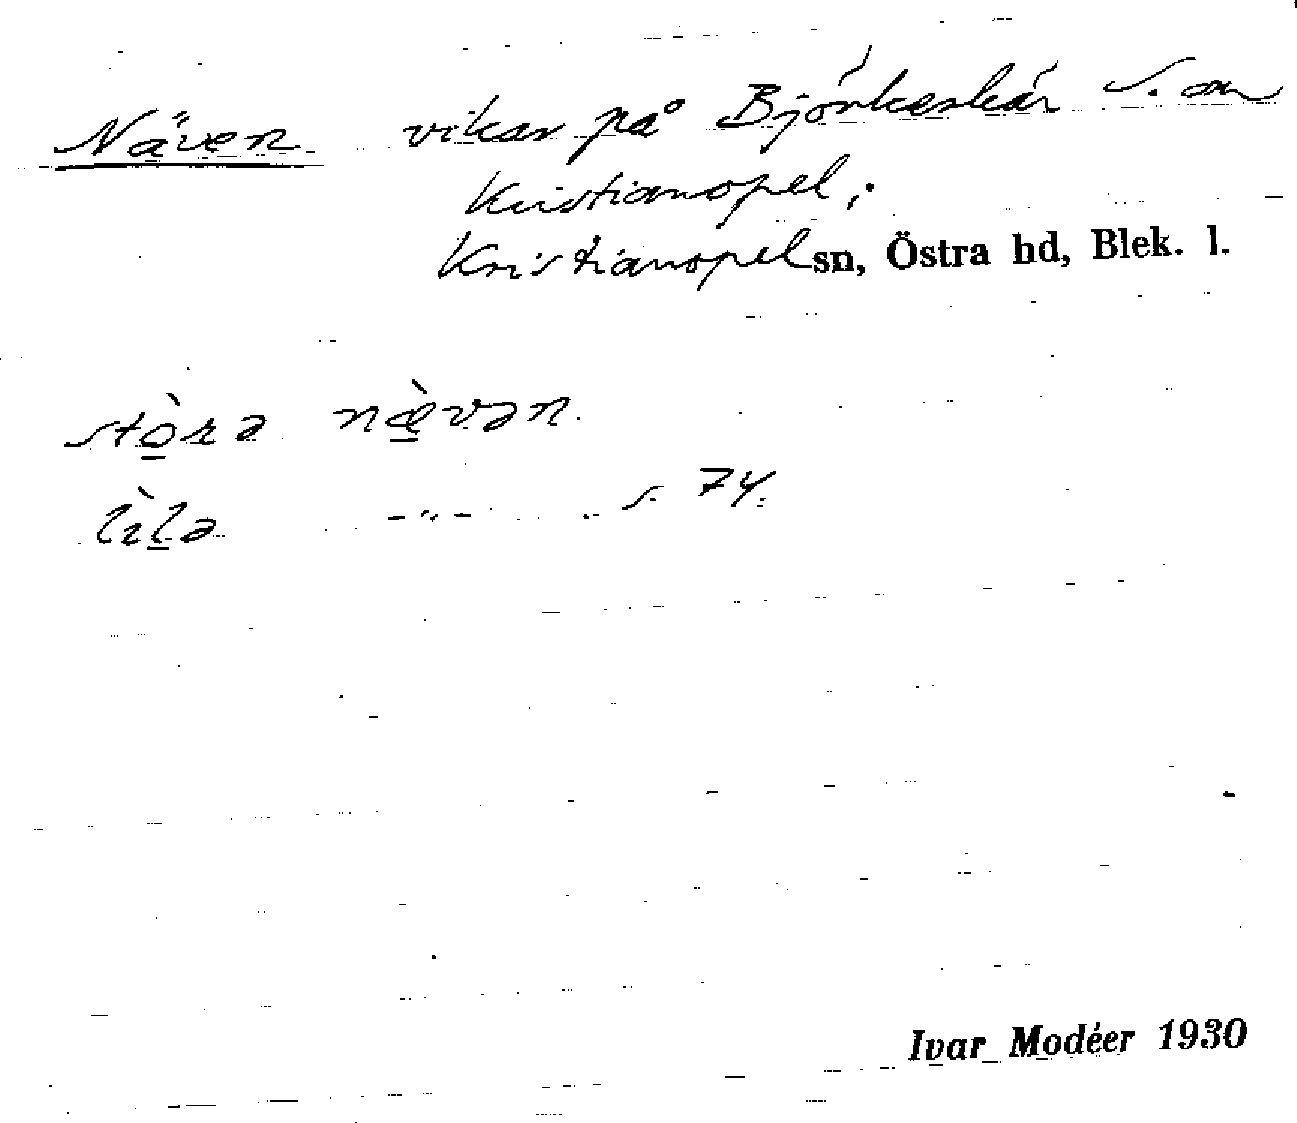 Näven vikar på Björkeskär S. om
Kristianopel;
Kristianopel sn, Östra hd, Blek. l.
stò̲ra næ̲̀vən.
lìl̲a -"- s. 74.
Ivar Modéer 1930